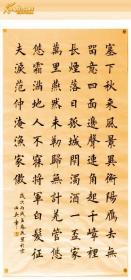 塞下秋來風景異衡陽雁去無
留意四面邊聲連角起千嶂裏
長煙落日孤城閉濁酒一盃家
萬里燕然未勒歸無計羌管悠
悠霜滿地人不寐將軍白髮征
夫淚范仲淹漁家傲